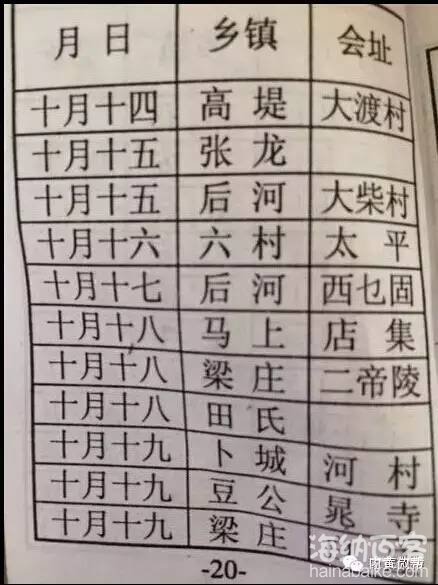 月 日 乡 镇 会址
十月十四 高 堤 大渡村
十月十五 张 龙
十月十五 后 河 大柴村
十月十六 六 村 太 平
十月十七 后 河 西乜固
十月十八 马 上 店 集
十月十八 梁 庄 二帝陵
十月十八 田 氏
十月十九 卜 城 河 村
十月十九 豆 公 晁 寺
十月十九 梁 庄
-20-
海纳百客
hainabaike.com